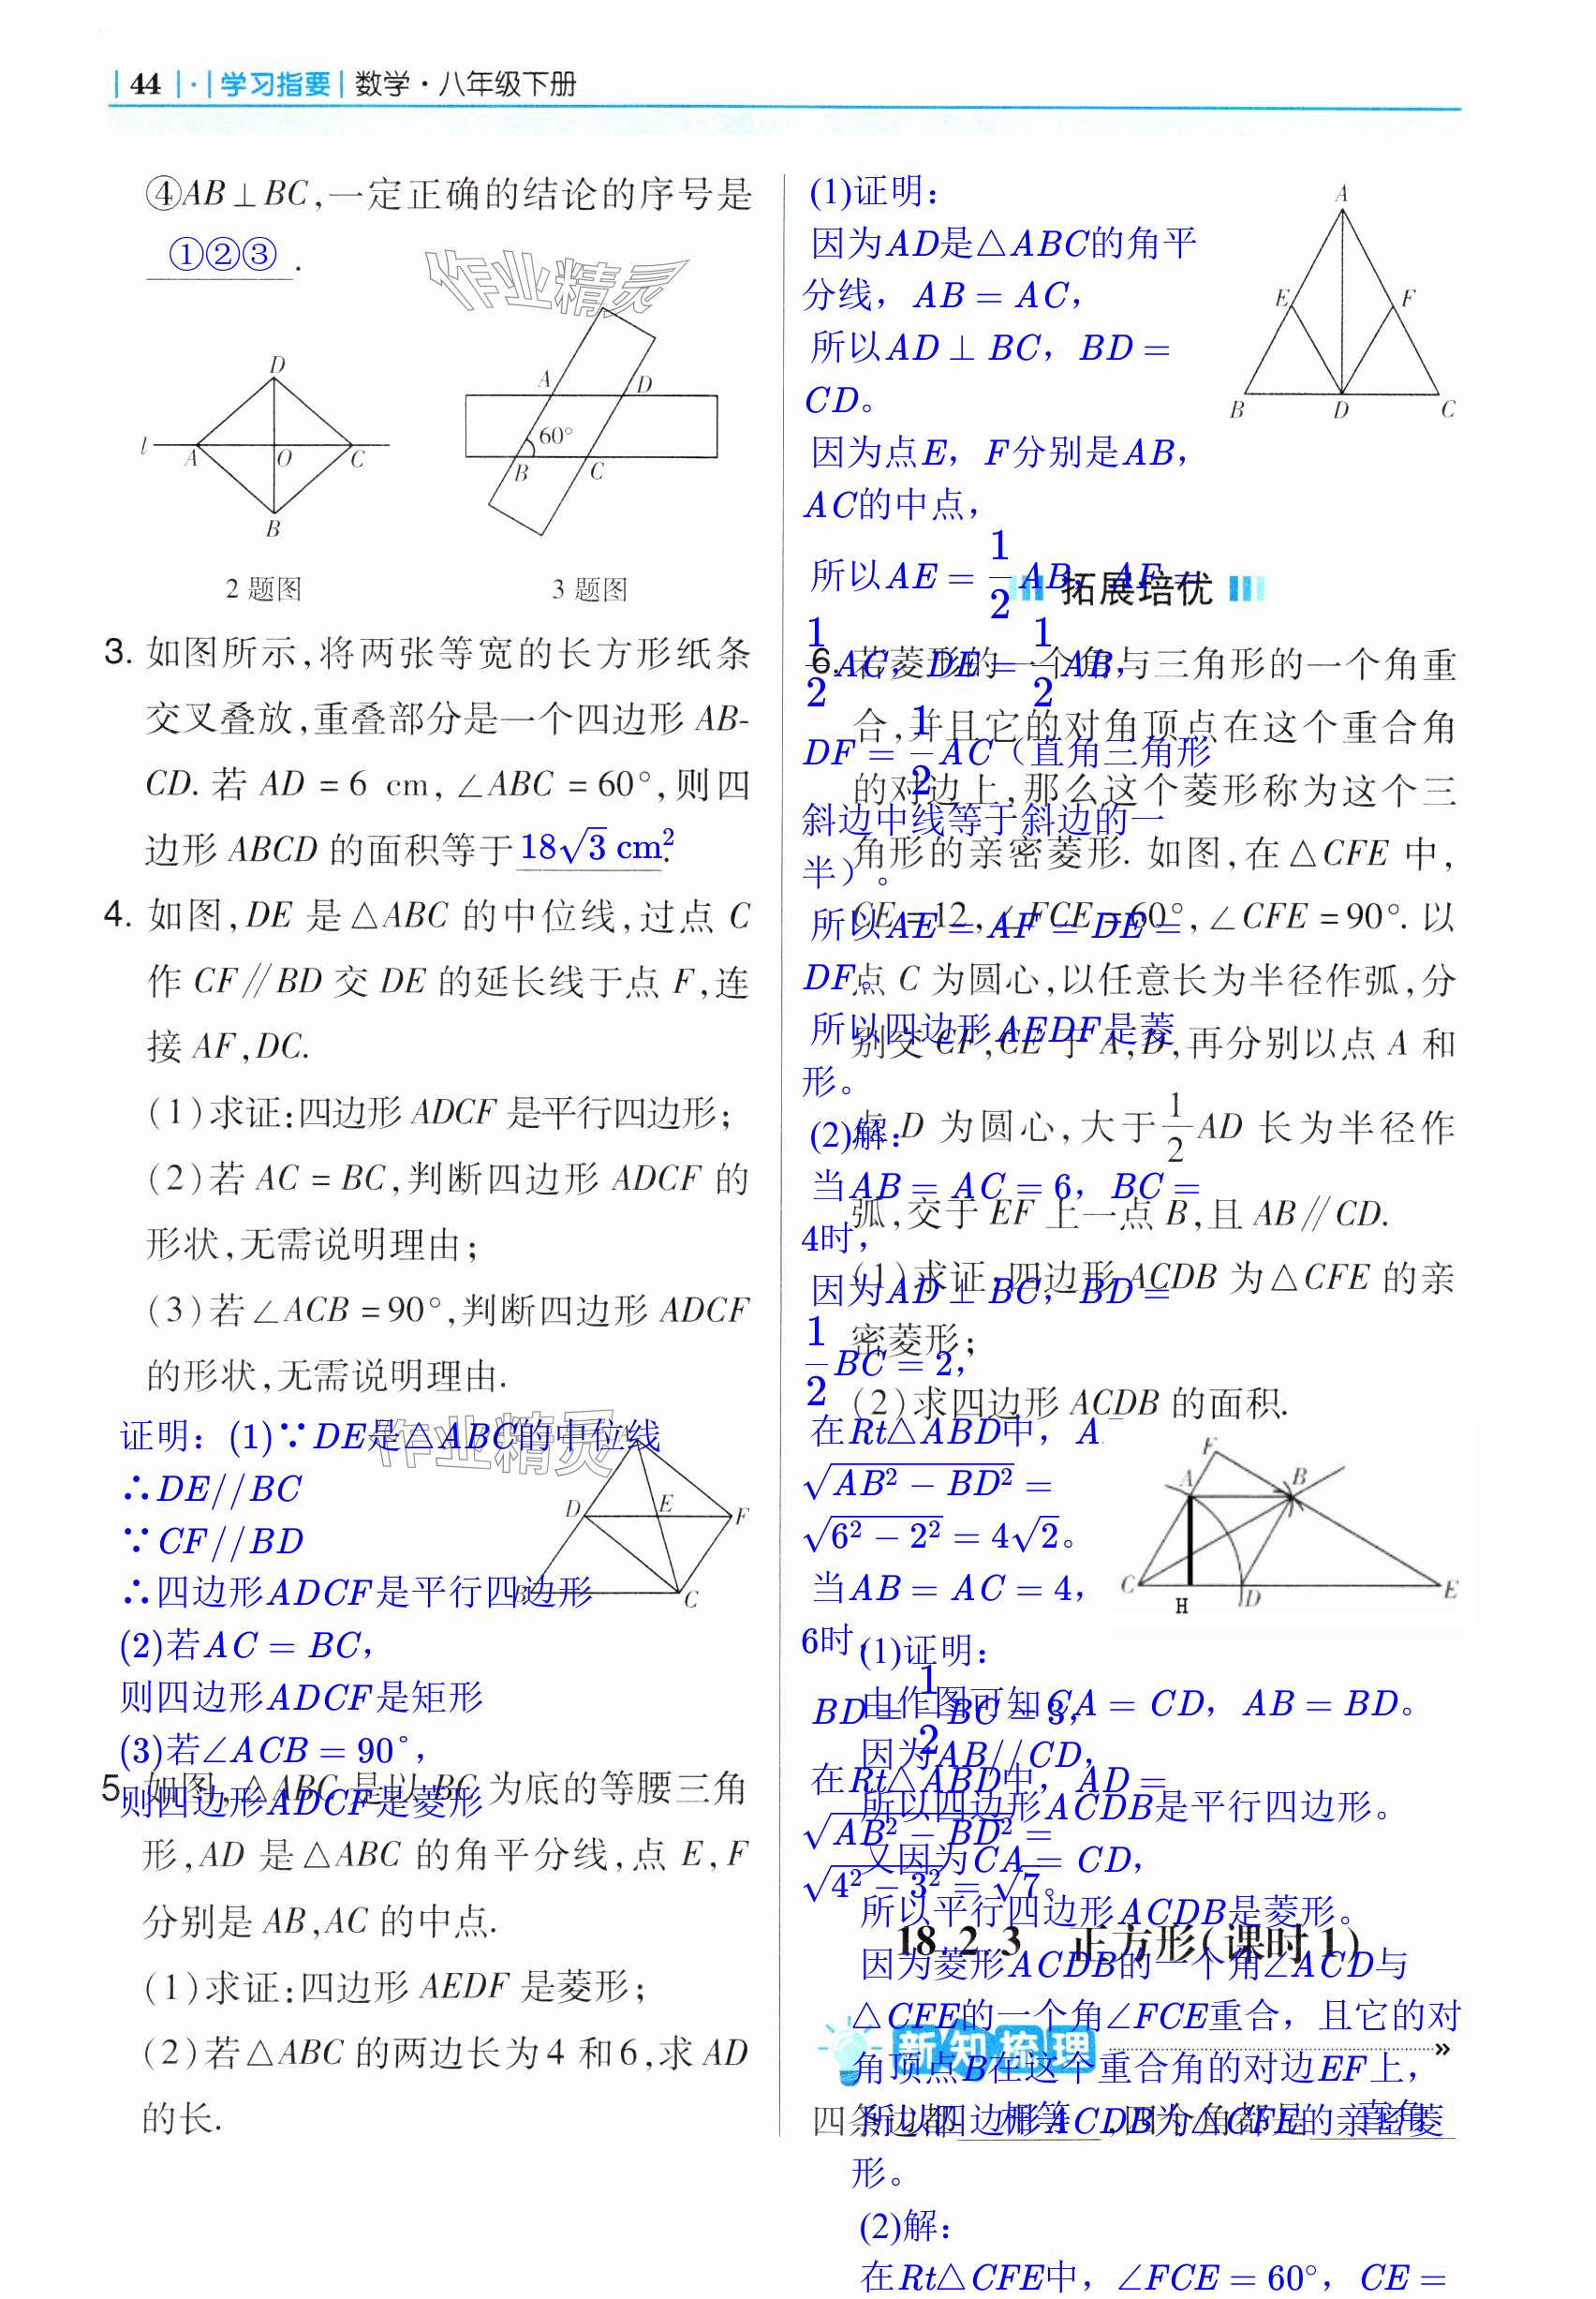 44 · 学习指要 数学·八年级下册
④AB⊥BC,一定正确的结论的序号是
①②③.
作业精灵
D
l A O C
B
A D
60°
B C
2题图 3题图
3. 如图所示,将两张等宽的长方形纸条
交叉叠放,重叠部分是一个四边形 AB-
CD. 若 AD = 6 cm, ∠ABC = 60°,则四
边形 ABCD 的面积等于 18√3 cm².
4. 如图,DE 是△ABC 的中位线,过点 C
作 CF∥BD 交 DE 的延长线于点 F,连
接 AF,DC.
(1)求证:四边形 ADCF 是平行四边形;
(2)若 AC = BC,判断四边形 ADCF 的
形状,无需说明理由;
(3)若∠ACB = 90°,判断四边形 ADCF
的形状,无需说明理由.
作业精灵
证明：(1)∵DE是△ABC的中位线
∴DE//BC
∵CF//BD
∴四边形ADCF是平行四边形
(2)若AC = BC,
则四边形ADCF是矩形
(3)若∠ACB = 90°,
则四边形ADCF是菱形
A
D E F
B C
5. 如图,△ABC 是以 BC 为底的等腰三角
形,AD 是△ABC 的角平分线,点 E,F
分别是 AB,AC 的中点.
(1)求证:四边形 AEDF 是菱形;
(2)若△ABC 的两边长为4 和6,求 AD
的长.
(1)证明：
因为AD是△ABC的角平
分线，AB = AC，
所以AD ⊥ BC，BD =
CD。
因为点E，F分别是AB，
AC的中点，
所以AE = 1/2 AB，AF =
1/2 AC，DE = 1/2 AB，
DF = 1/2 AC（直角三角形
斜边中线等于斜边的一
半）。
所以AE = AF = DE =
DF。
所以四边形AEDF是菱
形。
(2)解：
当AB = AC = 6，BC =
4时，
因为AD ⊥ BC，BD =
1/2 BC = 2，
在Rt△ABD中，A
√(AB² − BD²) =
√(6² − 2²) = 4√2。
当AB = AC = 4，
6时，
BD = 1/2 BC = 3，
在Rt△ABD中，AD =
√(AB² − BD²) =
√(4² − 3²) = √7。
A
E F
B D C
拓展培优
6. 若菱形的一个角与三角形的一个角重
合,并且它的对角顶点在这个重合角
的对边上,那么这个菱形称为这个三
角形的亲密菱形. 如图,在△CFE 中,
CE = 12,∠FCE = 60°,∠CFE = 90°. 以
点 C 为圆心,以任意长为半径作弧,分
别交 CF,CE 于 A,D,再分别以点 A 和
点 D 为圆心,大于 1/2 AD 长为半径作
弧,交于 EF 上一点 B,且 AB∥CD.
(1)求证:四边形 ACDB 为△CFE 的亲
密菱形;
(2)求四边形 ACDB 的面积.
F
A B
C H D E
(1)证明：
由作图可知CA = CD，AB = BD。
因为AB//CD，
所以四边形ACDB是平行四边形。
又因为CA = CD，
所以平行四边形ACDB是菱形。
因为菱形ACDB的一个角∠ACD与
△CFE的一个角∠FCE重合，且它的对
角顶点B在这个重合角的对边EF上，
所以四边形ACDB为△CFE的亲密菱
形。
(2)解：
在Rt△CFE中，∠FCE = 60°，CE =
18.2.3 正方形(课时1)
新知梳理
四条边都 相等 ,四个角都是 直角